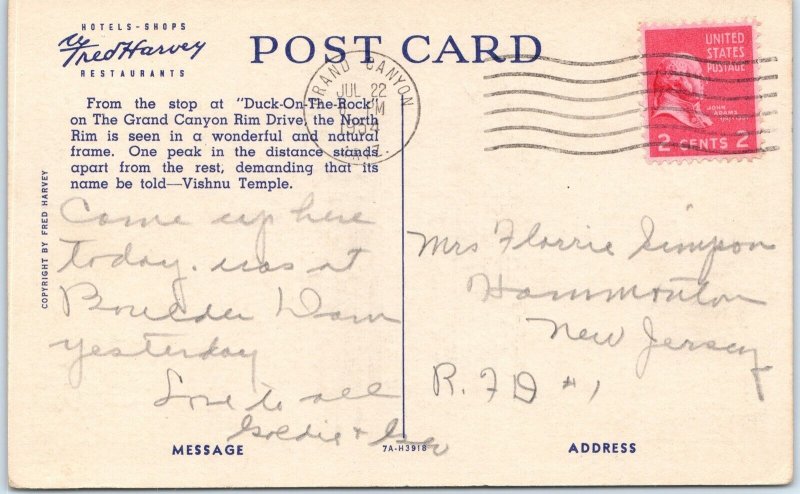 HOTELS - SHOPS
Fred Harvey
RESTAURANTS
POST CARD
GRAND CANYON
JUL 22
M
1954
ARIZ.
UNITED
STATES
POSTAGE
JOHN
ADAMS
2 CENTS 2
From the stop at "Duck-On-The-Rock"
on The Grand Canyon Rim Drive, the North
Rim is seen in a wonderful and natural
frame. One peak in the distance stands
apart from the rest, demanding that its
name be told—Vishnu Temple.
COPYRIGHT BY FRED HARVEY
Came up here
today. was at
Boulder Dam
yesterday
Love to all
Goldie + Geo
Mrs Florrie Simpson
Hammonton
New Jersey
R. F D #1
MESSAGE
7A-H3918
ADDRESS